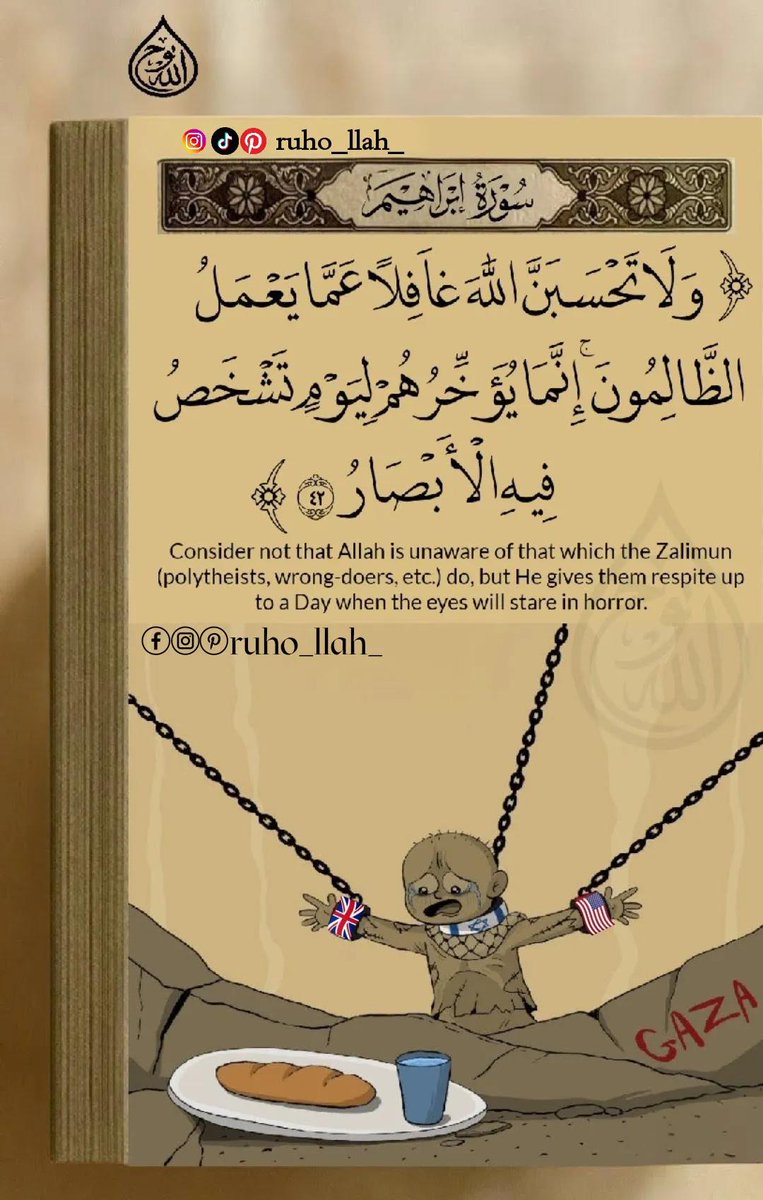 روح الله
ruho_llah_
سُوْرَةُ إِبْرَاهِيْمَ
وَلَا تَحْسَبَنَّ اللَّهَ غَافِلًا عَمَّا يَعْمَلُ
الظَّالِمُونَ ۚ إِنَّمَا يُؤَخِّرُهُمْ لِيَوْمٍ تَشْخَصُ
فِيهِ الْأَبْصَارُ ٤٢
Consider not that Allah is unaware of that which the Zalimun
(polytheists, wrong-doers, etc.) do, but He gives them respite up
to a Day when the eyes will stare in horror.
ruho_llah_
روح الله
GAZA